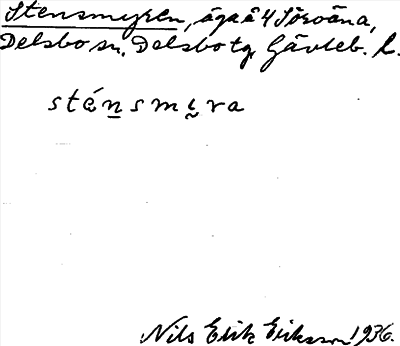 Stensmyren, äga å 4 Söroåna,
Delsbo sn. Delsbo tg. Gävleb. l.
sténsmy̰ra
Nils Erik Eriksson 1936.